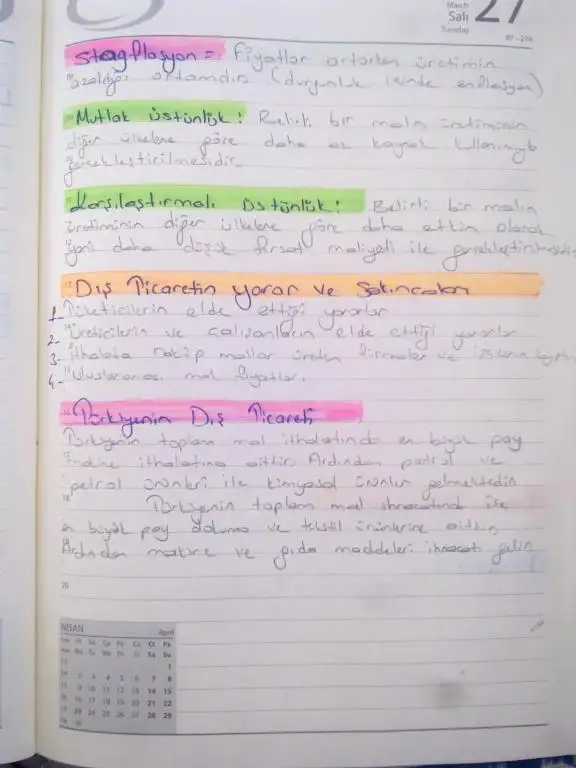 March
Salı
Tuesday
27
87-278
Stagflasyon = Fiyatlar artarken üretimin
azaldığı ortamdır (durgunluk içinde enflasyon)
Mutlak üstünlük: Belirli bir malın üretiminin
diğer ülkelere göre daha az kaynak kullanımıyla
gerçekleştirilmesidir.
Karşılaştırmalı Üstünlük: Belirli bir malın
üretiminin diğer ülkelere göre daha etkin olarak
yani daha düşük fırsat maliyeti ile gerçekleştirilmesidir
Dış Ticaretin yarar ve Sakıncaları
1- Tüketicilerin elde ettiği yararlar
2- Üreticilerin ve çalışanların elde ettiği yararlar
3- İthalata rakip mallar üreten firmalar ve işçilerin kayıpları
4- Uluslararası mal fiyatları.
Türkiyenin Dış Ticareti
Türkiyenin toplam mal ithalatında en büyük pay
makine ithalatına aittir. Ardından petrol ve
petrol ürünleri ile kimyasal ürünler gelmektedir
Türkiyenin toplam mal ihracatında ise
en büyük pay dokuma ve tekstil ürünlerine aittir
Ardından makine ve gıda maddeleri ihracatı gelir
20
NİSAN April
Sa Ça Pe Cu Ct Pa
Tu We Th Fr Sa Su
1
2 3 4 5 6 7 8
9 10 11 12 13 14 15
16 17 18 19 20 21 22
23 24 25 26 27 28 29
30